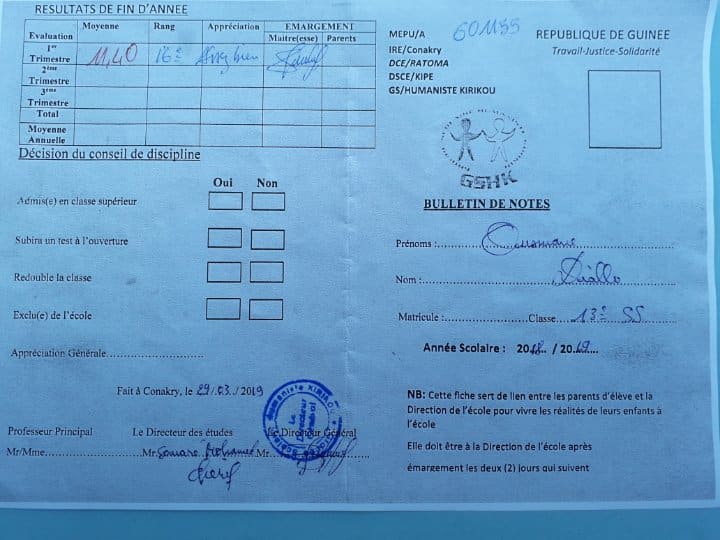 RESULTATS DE FIN D'ANNEE
Evaluation Moyenne Rang Appréciation EMARGEMENT
Maitre(esse) Parents
1er Trimestre 11,40 16e Assez bien
2ème Trimestre
3ème Trimestre
Total
Moyenne Annuelle
Décision du conseil de discipline
Oui Non
Admis(e) en classe supérieur
Subira un test à l'ouverture
Redouble la classe
Exclu(e) de l'école
Appréciation Générale
Fait à Conakry, le 29/03/2019
Professeur Principal Le Directeur des études Le Directeur Général
Mr/Mme Mr Mohamed Mr
Le Directeur Général
MEPU/A
601155
IRE/Conakry
DCE/RATOMA
DSCE/KIPE
GS/HUMANISTE KIRIKOU
REPUBLIQUE DE GUINEE
Travail-Justice-Solidarité
GSHK
BULLETIN DE NOTES
Prénoms : Ousmane
Nom : Diallo
Matricule : Classe 13e SS
Année Scolaire : 2018 / 2019
NB: Cette fiche sert de lien entre les parents d'élève et la
Direction de l'école pour vivre les réalités de leurs enfants à
l'école
Elle doit être à la Direction de l'école après
émargement les deux (2) jours qui suivent